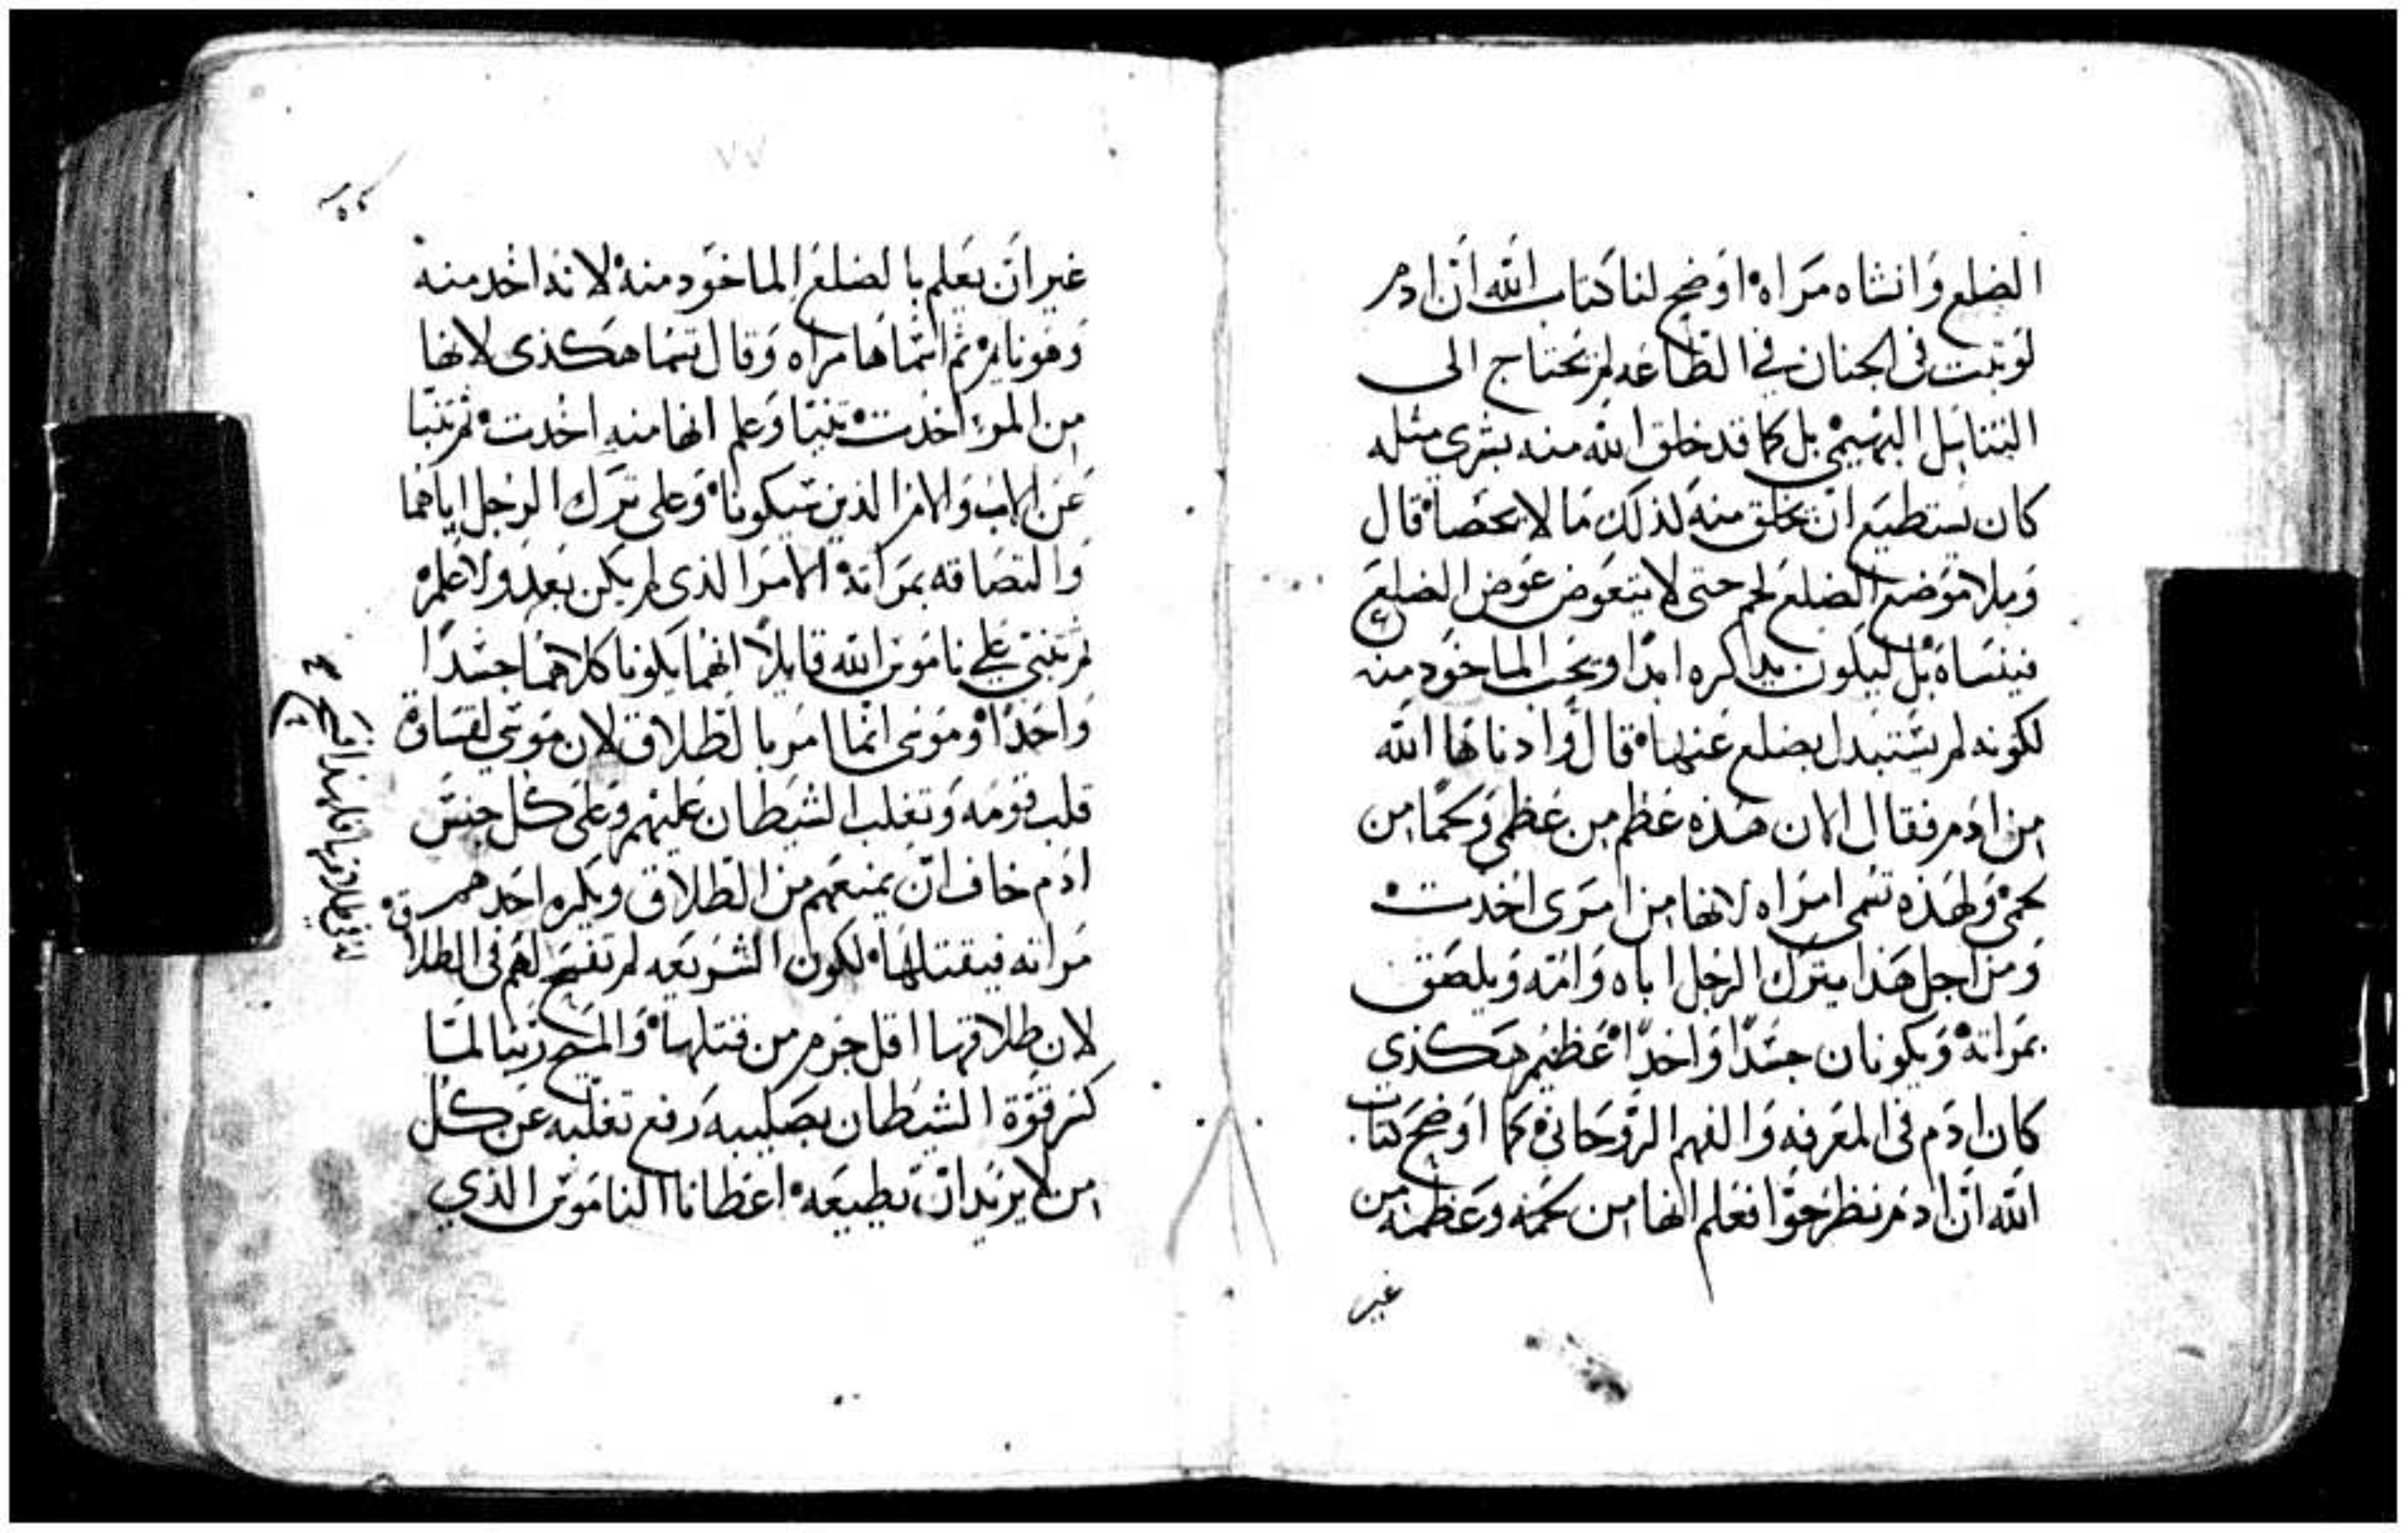 الضلع وانشاه مراه اوضح لنا كتاب الله ان ادم
لو ثبت في الجنان في الطاعه لم يحتاج الى
التناسل البهيمي بل كما قد خلق الله منه بشري مثله
كان يستطيع ان يخلق منه لذلك ما لا يحصا قال
وملا موضع الضلع لحم حتى لا يتعوض عوض الضلع
فينساه بل ليكون يداكره ابدا ويحب الماخود منه
لكونه لم يستبدل بضلع عنها قال وادناها الله
من ادم فقال الان هذه عظم من عظمي ولحما من
لحمي ولهذه تسمى امراه لانها من امرى اخدت
ومن اجل هذا يترك الرجل اباه وامه ويلصق
بمراته ويكونان جسدا واحدا عظيم هكذي
كان ادم في المعرفه والفهم الروحاني كما اوضح كتاب
الله ان ادم نظر حوا فعلم انها من لحمه وعظمه من
غير
٧٧
غير ان يعلم بالضلع الماخود منه لانه اخد منه
وهو نايم ثم اسماها مراه وقال تسما هكذى لانها
من المرء اخدت تنبا وعلم انها منه اخدت ثم تنبا
عن الاب والام الذين سيكونا وعلى ترك الرجل اياهما
والتصاقه بمراته الامر الذى لم يكن بعد ولا علم
ثم تنبى على ناموس الله قايلا انهما يكونا كلاهما جسدا
واحدا وموسى انما امر بالطلاق لان موسى لقساوة
قلب قومه وتغلب الشيطان عليهم وعلى كل جنس
ادم خاف ان يمنعهم من الطلاق ويكره احدهم
مراته فيقتلها لكون الشريعه لم تفسح لهم في الطلاق
لان طلاقها اقل جرم من قتلها والمسيح ربنا لما
كسر قوة الشيطان بصليبه رفع تغلبه عن كل
من لا يريد ان يطيعه اعطانا الناموس الذي